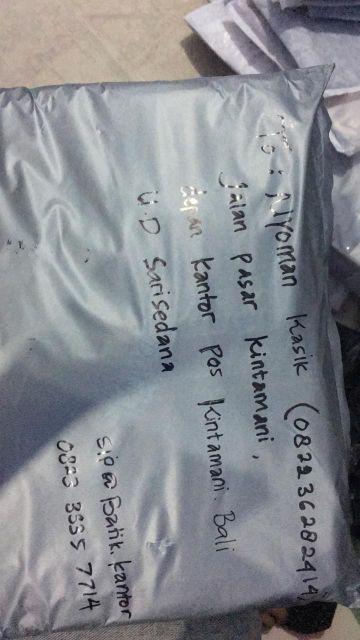 To: Nyoman Kasik (082236282414)
Jalan pasar kintamani,
depan kantor pos Kintamani. Bali
U.D Sarisedana
sip@batik.kantor
0823 3335 7714